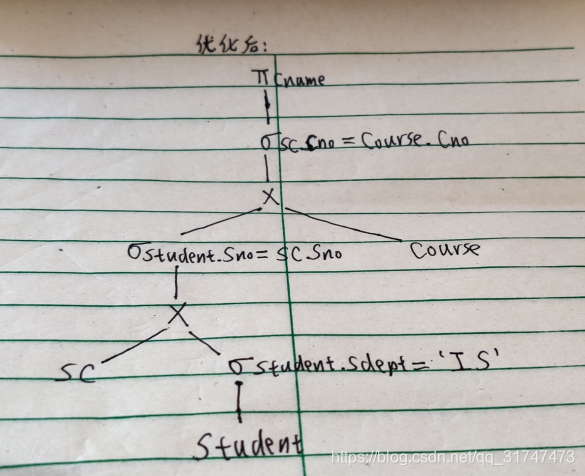 优化后:
π Cname
σ SC.Cno = Course.Cno
X
σ Student.Sno = SC.Sno
Course
X
SC
σ Student.Sdept = 'IS'
Student
https://blog.csdn.net/qq_31747473